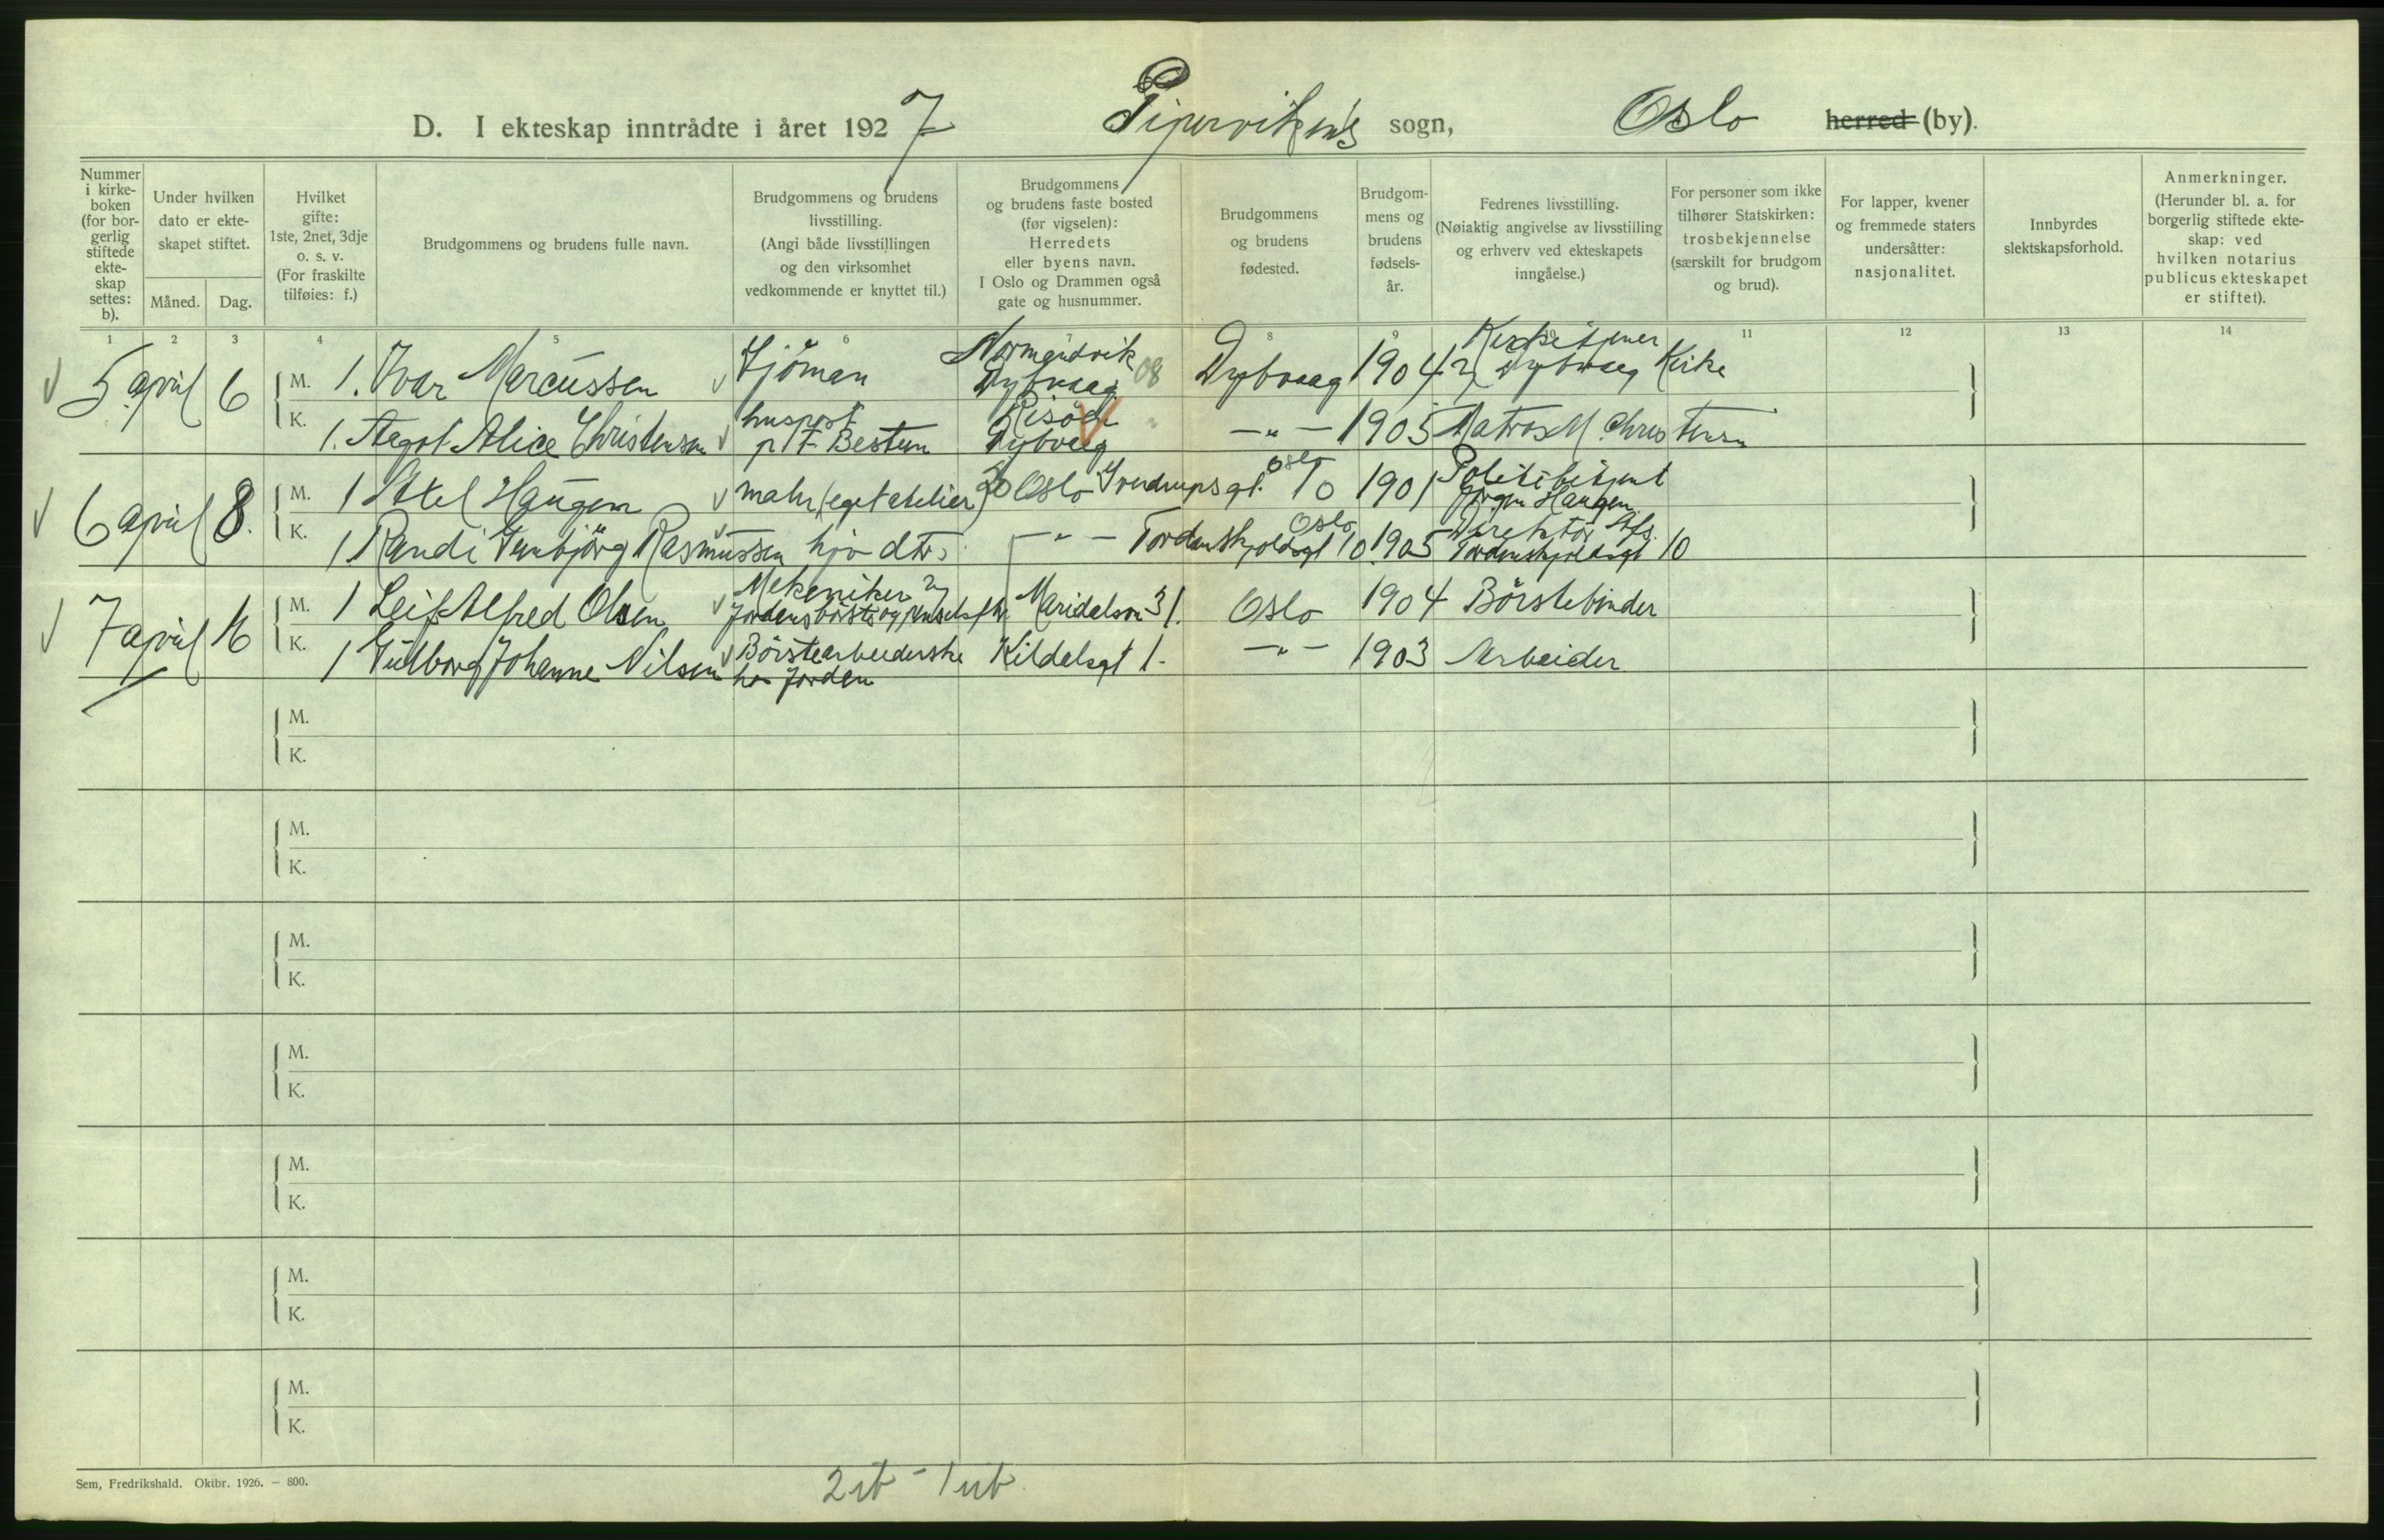 D. I ekteskap inntrådte i året 1927 Pipervikens sogn, Oslo herred (by).
Nummer i kirke-boken (for bor-gerlig stiftede ekte-skap settes: b).
Under hvilken dato er ekte-skapet stiftet.
Måned. Dag.
Hvilket gifte: 1ste, 2net, 3dje o. s. v. (For fraskilte tilføies: f.)
Brudgommens og brudens fulle navn.
Brudgommens og brudens livsstilling. (Angi både livsstillingen og den virksomhet vedkommende er knyttet til.)
Brudgommens og brudens faste bosted (før vigselen): Herredets eller byens navn. I Oslo og Drammen også gate og husnummer.
Brudgommens og brudens fødested.
Brudgom-mens og brudens fødsels-år.
Fedrenes livsstilling. (Nøiaktig angivelse av livsstilling og erhverv ved ekteskapets inngåelse.)
For personer som ikke tilhører Statskirken: trosbekjennelse (særskilt for brudgom og brud).
For lapper, kvener og fremmede staters undersåtter: nasjonalitet.
Innbyrdes slektskapsforhold.
Anmerkninger. (Herunder bl. a. for borgerlig stiftede ekte-skap: ved hvilken notarius publicus ekteskapet er stiftet).
1 2 3 4 5 6 7 8 9 10 11 12 13 14
5 april 6 M. 1. Ivar Marcussen Sjöman Normandvik Dybvaag 08 Dybvaag 1904 Kirketjener v Dybvaag Kirke
K. 1. Alice Christensen huspost p t Bestum Risöen Dybvaag -"- 1905 Matros M. Christensen
6 april 8. M. 1 Axel Haugen maler (eget atelier) 20 Oslo Sverdrupsgt. Oslo 1901 Politibetjent Jörgen Haugen
K. 1 Randi Rasmussen hjv dtr. -"- Tordenskjoldsgt 10 Oslo 1905 Direktör Tordenskjoldsgt 10
7 april 16 M. 1 Leif Alfred Olsen Mekaniker v Jordens börste og penselfbr. Maridalsvn 31. Oslo 1904 Börstebinder
K. 1 Gudborg Johanne Nilsen Börstearbeiderske hos Jorden Kildalsgt 1. -"- 1903 Arbeider
M.
K.
M.
K.
M.
K.
M.
K.
M.
K.
M.
K.
M.
K.
Sem, Fredrikshald. Oktbr. 1926. — 800.
2 ib - 1 ub.